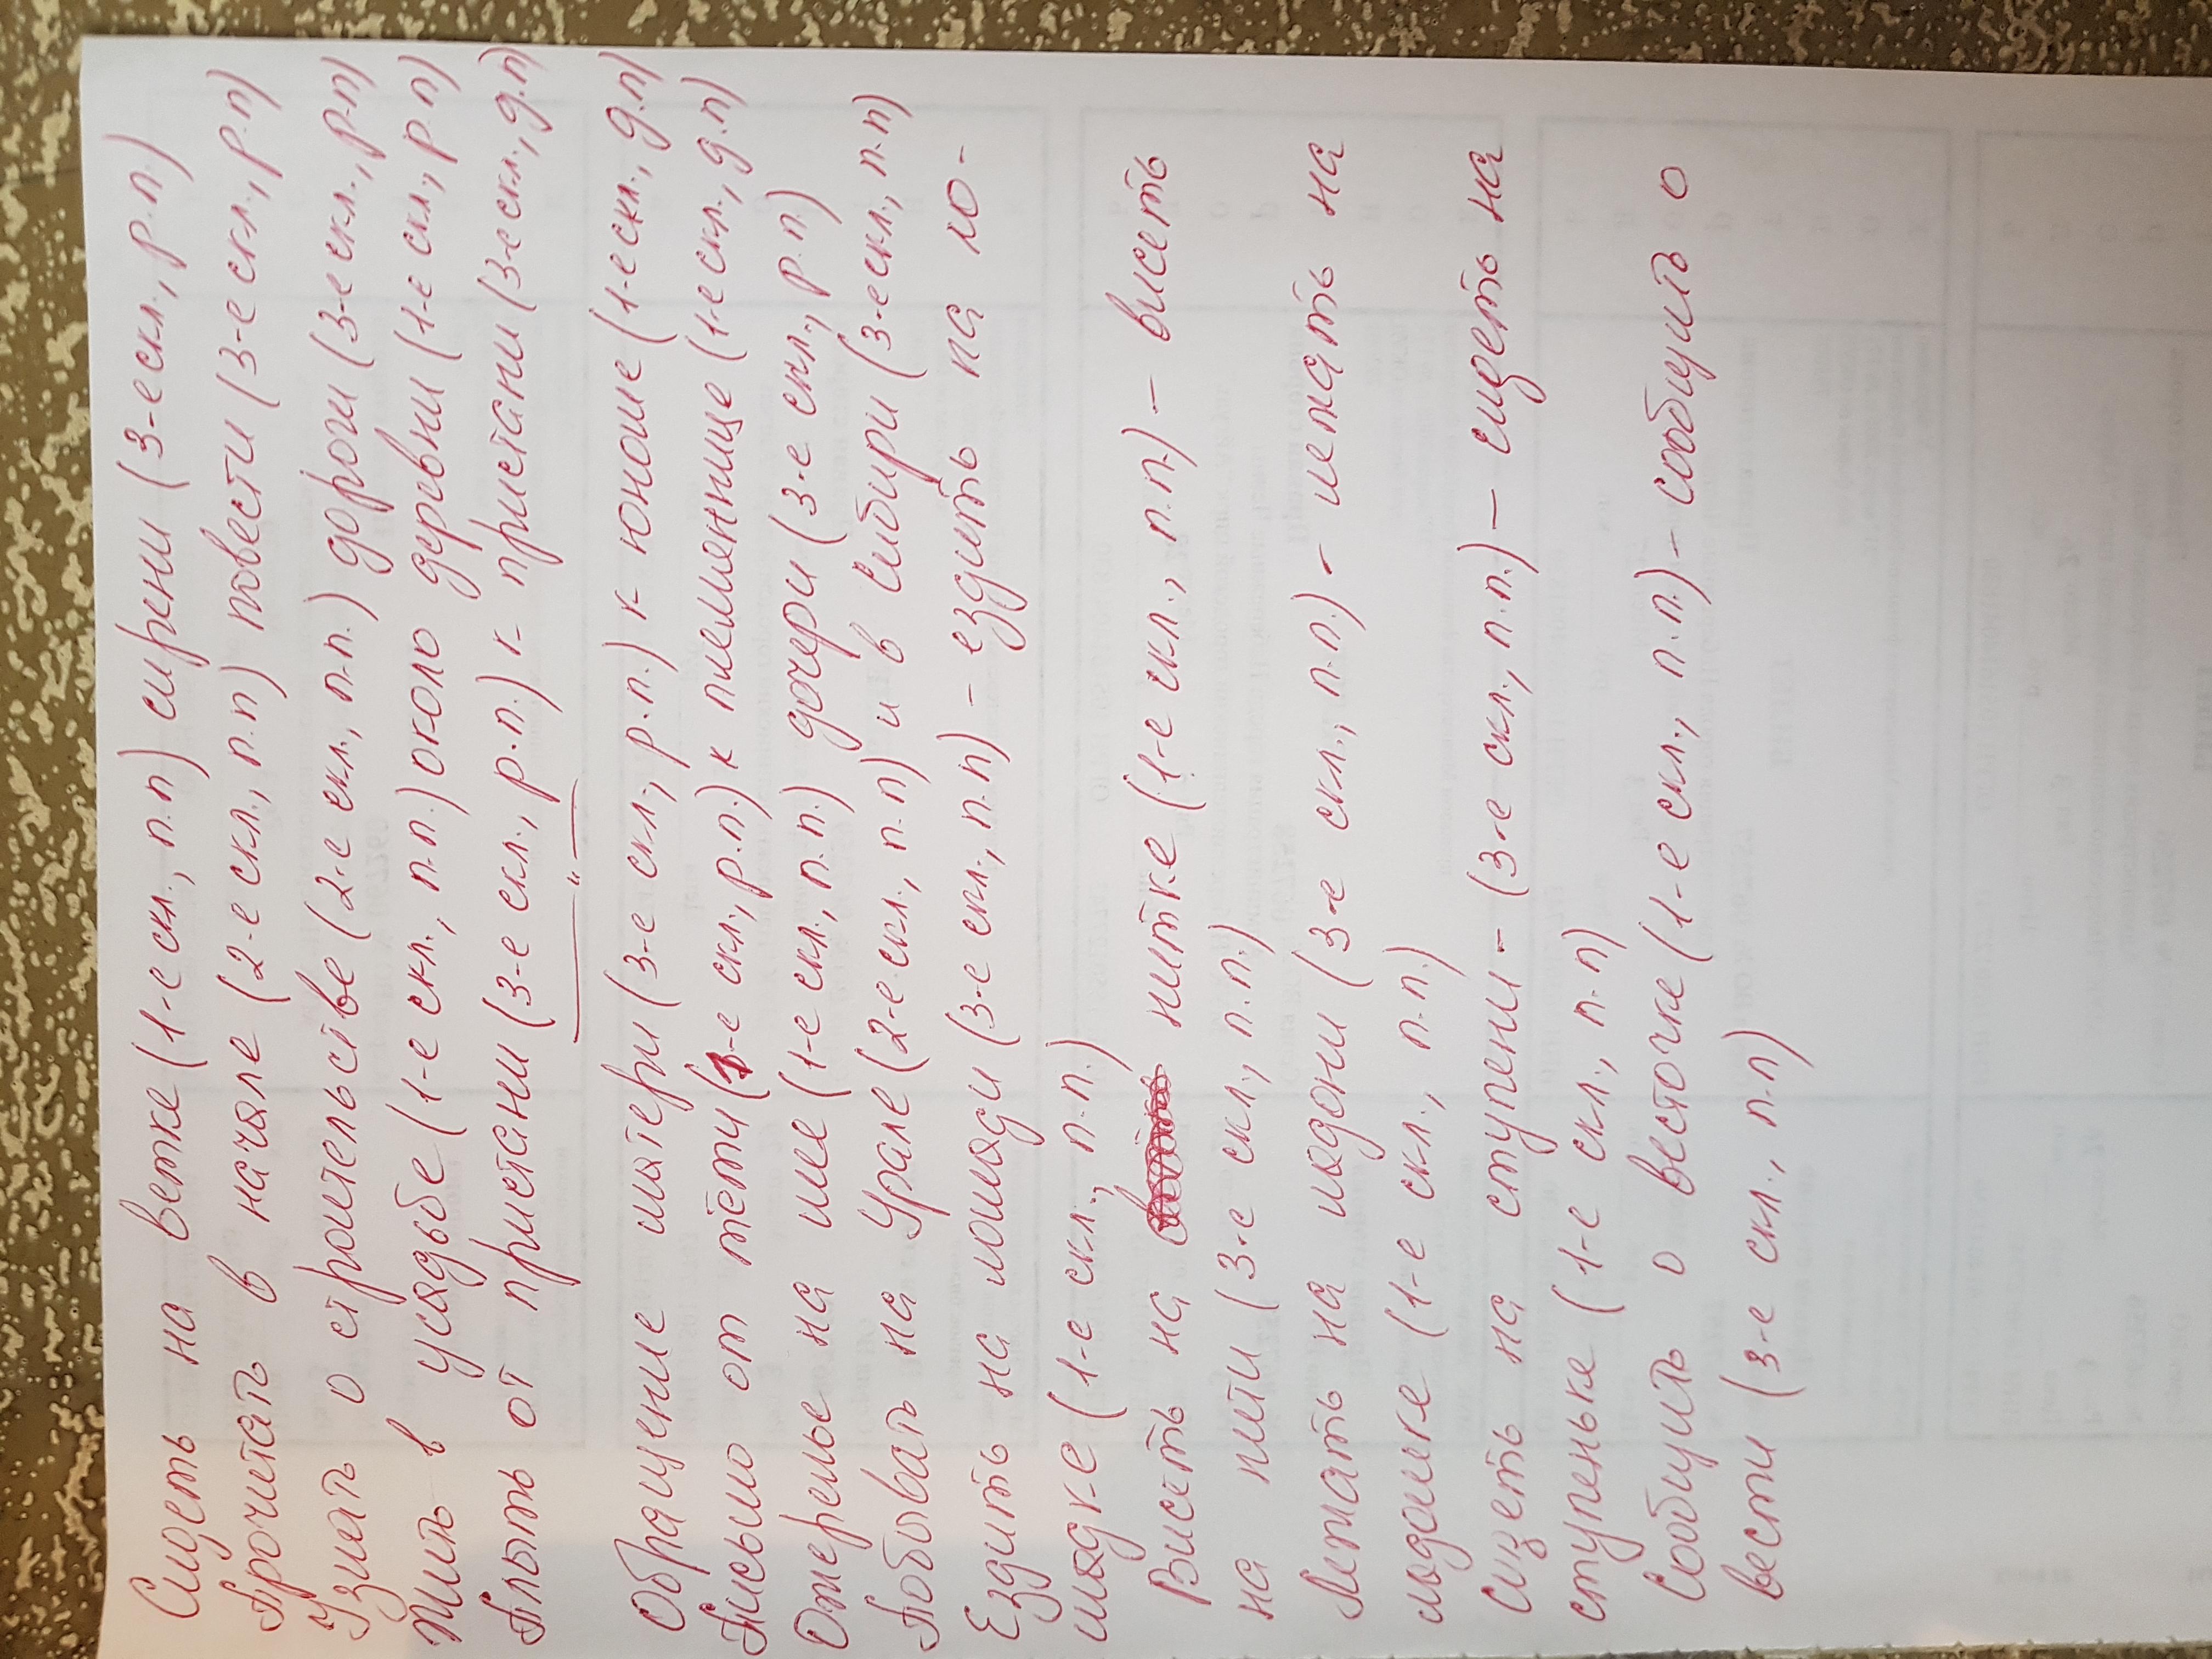 Сидеть на ветке (1-е скл., п.п) сирени (3-е скл., р.п.)
Прочитать в начале (2-е скл., п.п) повести (3-е скл., р.п)
Узнать о строительстве (2-е скл., п.п.) дороги (3-е скл., р.п)
Жить в усадьбе (1-е скл., п.п.) около деревни (1-е скл., р.п)
Плыть от пристани (3-е скл., р.п.) к пристани (3-е скл., д.п)
— " —
Обращение матери (3-е скл., р.п.) к юноше (1-е скл., д.п)
Письмо от тёти (1-е скл., р.п.) к племяннице (1-е скл., д.п)
Ожерелье на шее (1-е скл., п.п.) дочери (3-е скл., р.п.)
Побывать на Урале (2-е скл., п.п) и в Сибири (3-е скл., п.п)
Ездить на лошади (3-е скл., п.п) - ездить на ло-
шадке (1-е скл., п.п.)
Висеть на нитке (1-е скл., п.п) - висеть
на нити (3-е скл., п.п.)
Лежать на ладони (3-е скл., п.п.) - лежать на
ладошке (1-е скл., п.п.)
Сидеть на ступени - (3-е скл., п.п.) - сидеть на
ступеньке (1-е скл., п.п)
Сообщить о весточке (1-е скл., п.п) - сообщить о
вести (3-е скл., п.п)